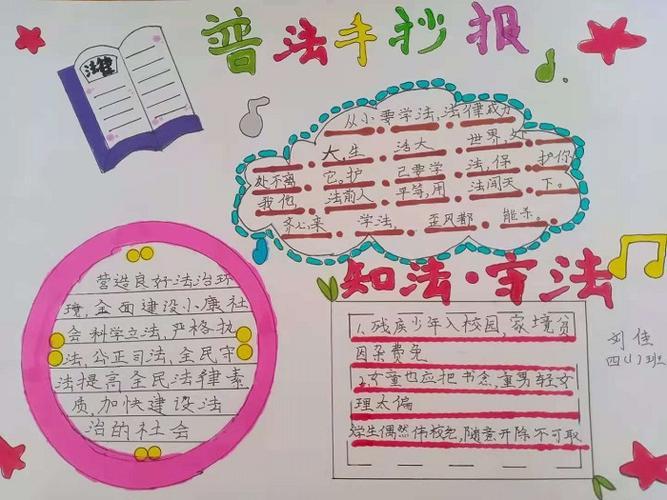 普法手抄报
法律
从小要学法,法律威力
大,生 浩大 世界,处
处不离 它。护 己要学 法,保 护你
我他, 法前人 平等,用 法闯天 下。
齐心来 学法, 歪风都 能杀。
知法·守法
营造良好法治环
境,全面建设小康社
会科学立法,严格执
法,公正司法,全民守
法提高全民法律素
质,加快建设法
治的社会
1、残疾少年入校园,家境贫
困杂费免
2、女童也应把书念,重男轻女
理太偏
学生偶然伤校纪,随意开除不可取
刘佳
四(1)班